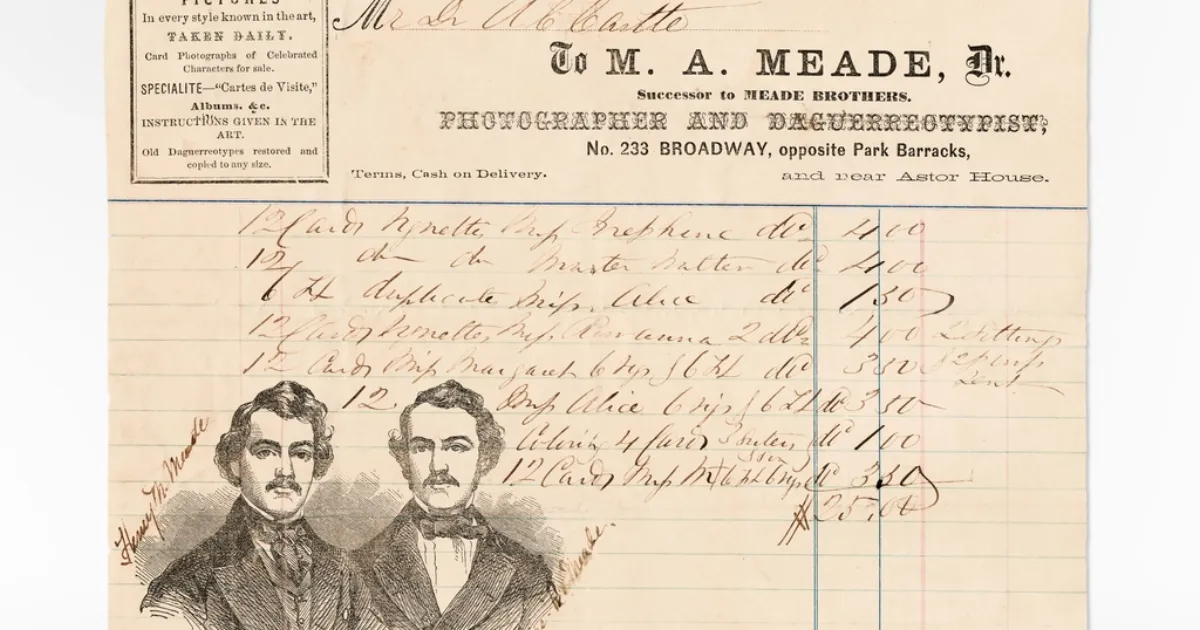 PICTURES
In every style known in the art,
TAKEN DAILY.
Card Photographs of Celebrated
Characters for sale.
SPECIALITE—“Cartes de Visite,”
Albums. &c.
INSTRUCTIONS GIVEN IN THE
ART.
Old Daguerreotypes restored and
copied to any size.
Mr Dr A C Castle
To M. A. MEADE, Dr.
Successor to MEADE BROTHERS.
PHOTOGRAPHER AND DAGUERREOTYPIST,
No. 233 BROADWAY, opposite Park Barracks,
Terms, Cash on Delivery. and near Astor House.
12 Cards Vignettes Miss Josephine 4 00
12 Master 4 00
6 duplicate Miss Alice 1 50
12 Cards Vignettes Miss 2 4 00 2 Sittings
12 Cards Miss Margaret 6 Vigs & 6 3 50
12. Miss Alice 6 Vigs & 6 3 50
Coloring 4 Cards 3 Sisters 1 00
12 Cards Miss 3 50
$25.00
Henry M. Meade
Meade.